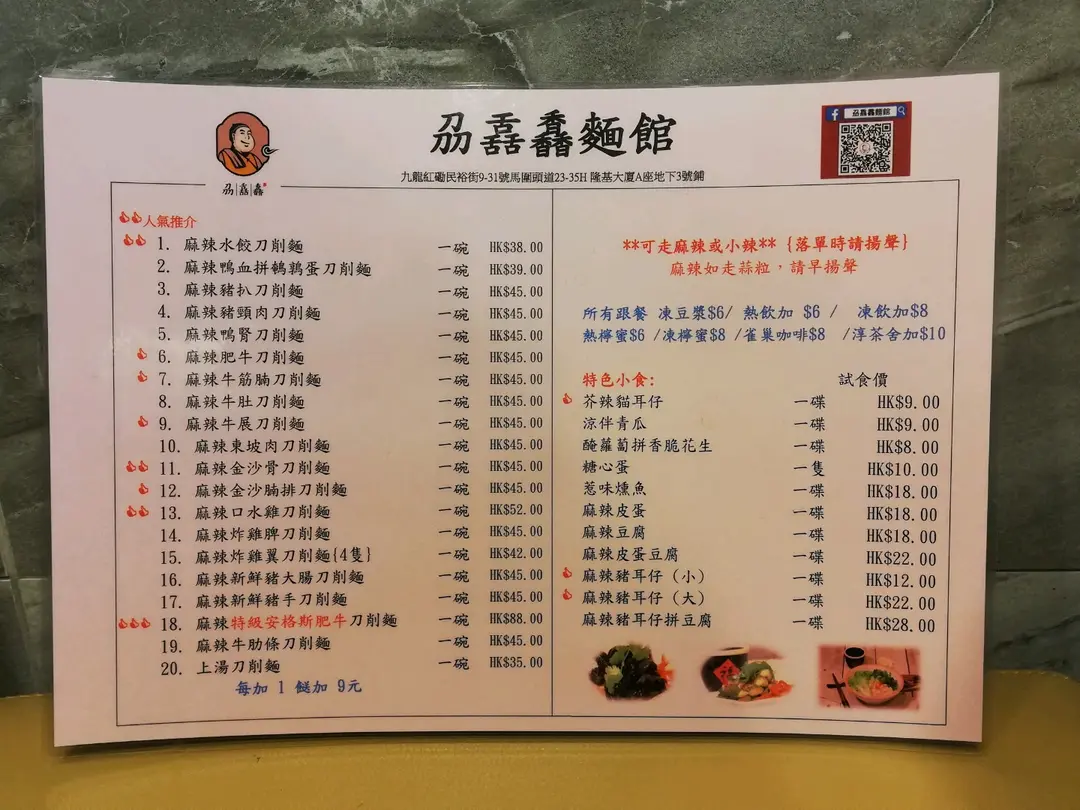 刕譶飝麵館
九龍紅磡民裕街9-31號馬圍頭道23-35H 隆基大廈A座地下3號鋪
人氣推介
1. 麻辣水餃刀削麵 一碗 HK$38.00
2. 麻辣鴨血拼鵪鶉蛋刀削麵 一碗 HK$39.00
3. 麻辣豬扒刀削麵 一碗 HK$45.00
4. 麻辣豬頸肉刀削麵 一碗 HK$45.00
5. 麻辣鴨腎刀削麵 一碗 HK$45.00
6. 麻辣肥牛刀削麵 一碗 HK$45.00
7. 麻辣牛筋腩刀削麵 一碗 HK$45.00
8. 麻辣牛肚刀削麵 一碗 HK$45.00
9. 麻辣牛展刀削麵 一碗 HK$45.00
10. 麻辣東坡肉刀削麵 一碗 HK$45.00
11. 麻辣金沙骨刀削麵 一碗 HK$45.00
12. 麻辣金沙腩排刀削麵 一碗 HK$45.00
13. 麻辣口水雞刀削麵 一碗 HK$52.00
14. 麻辣炸雞脾刀削麵 一碗 HK$45.00
15. 麻辣炸雞翼刀削麵{4隻} 一碗 HK$42.00
16. 麻辣新鮮豬大腸刀削麵 一碗 HK$45.00
17. 麻辣新鮮豬手刀削麵 一碗 HK$45.00
18. 麻辣特級安格斯肥牛刀削麵 一碗 HK$88.00
19. 麻辣牛肋條刀削麵 一碗 HK$45.00
20. 上湯刀削麵 一碗 HK$35.00
每加 1 餸加 9元
**可走麻辣或小辣** {落單時請揚聲}
麻辣如走蒜粒，請早揚聲
所有跟餐 凍豆漿$6/ 熱飲加 $6 / 凍飲加$8
熱檸蜜$6 /凍檸蜜$8 /雀巢咖啡$8 /淳茶舍加$10
特色小食: 試食價
芥辣貓耳仔 一碟 HK$9.00
涼伴青瓜 一碟 HK$9.00
醃蘿蔔拼香脆花生 一碟 HK$8.00
糖心蛋 一隻 HK$10.00
蔥味燻魚 一碟 HK$18.00
麻辣皮蛋 一碟 HK$18.00
麻辣豆腐 一碟 HK$18.00
麻辣皮蛋豆腐 一碟 HK$22.00
麻辣豬耳仔（小） 一碟 HK$12.00
麻辣豬耳仔（大） 一碟 HK$22.00
麻辣豬耳仔拼豆腐 一碟 HK$28.00